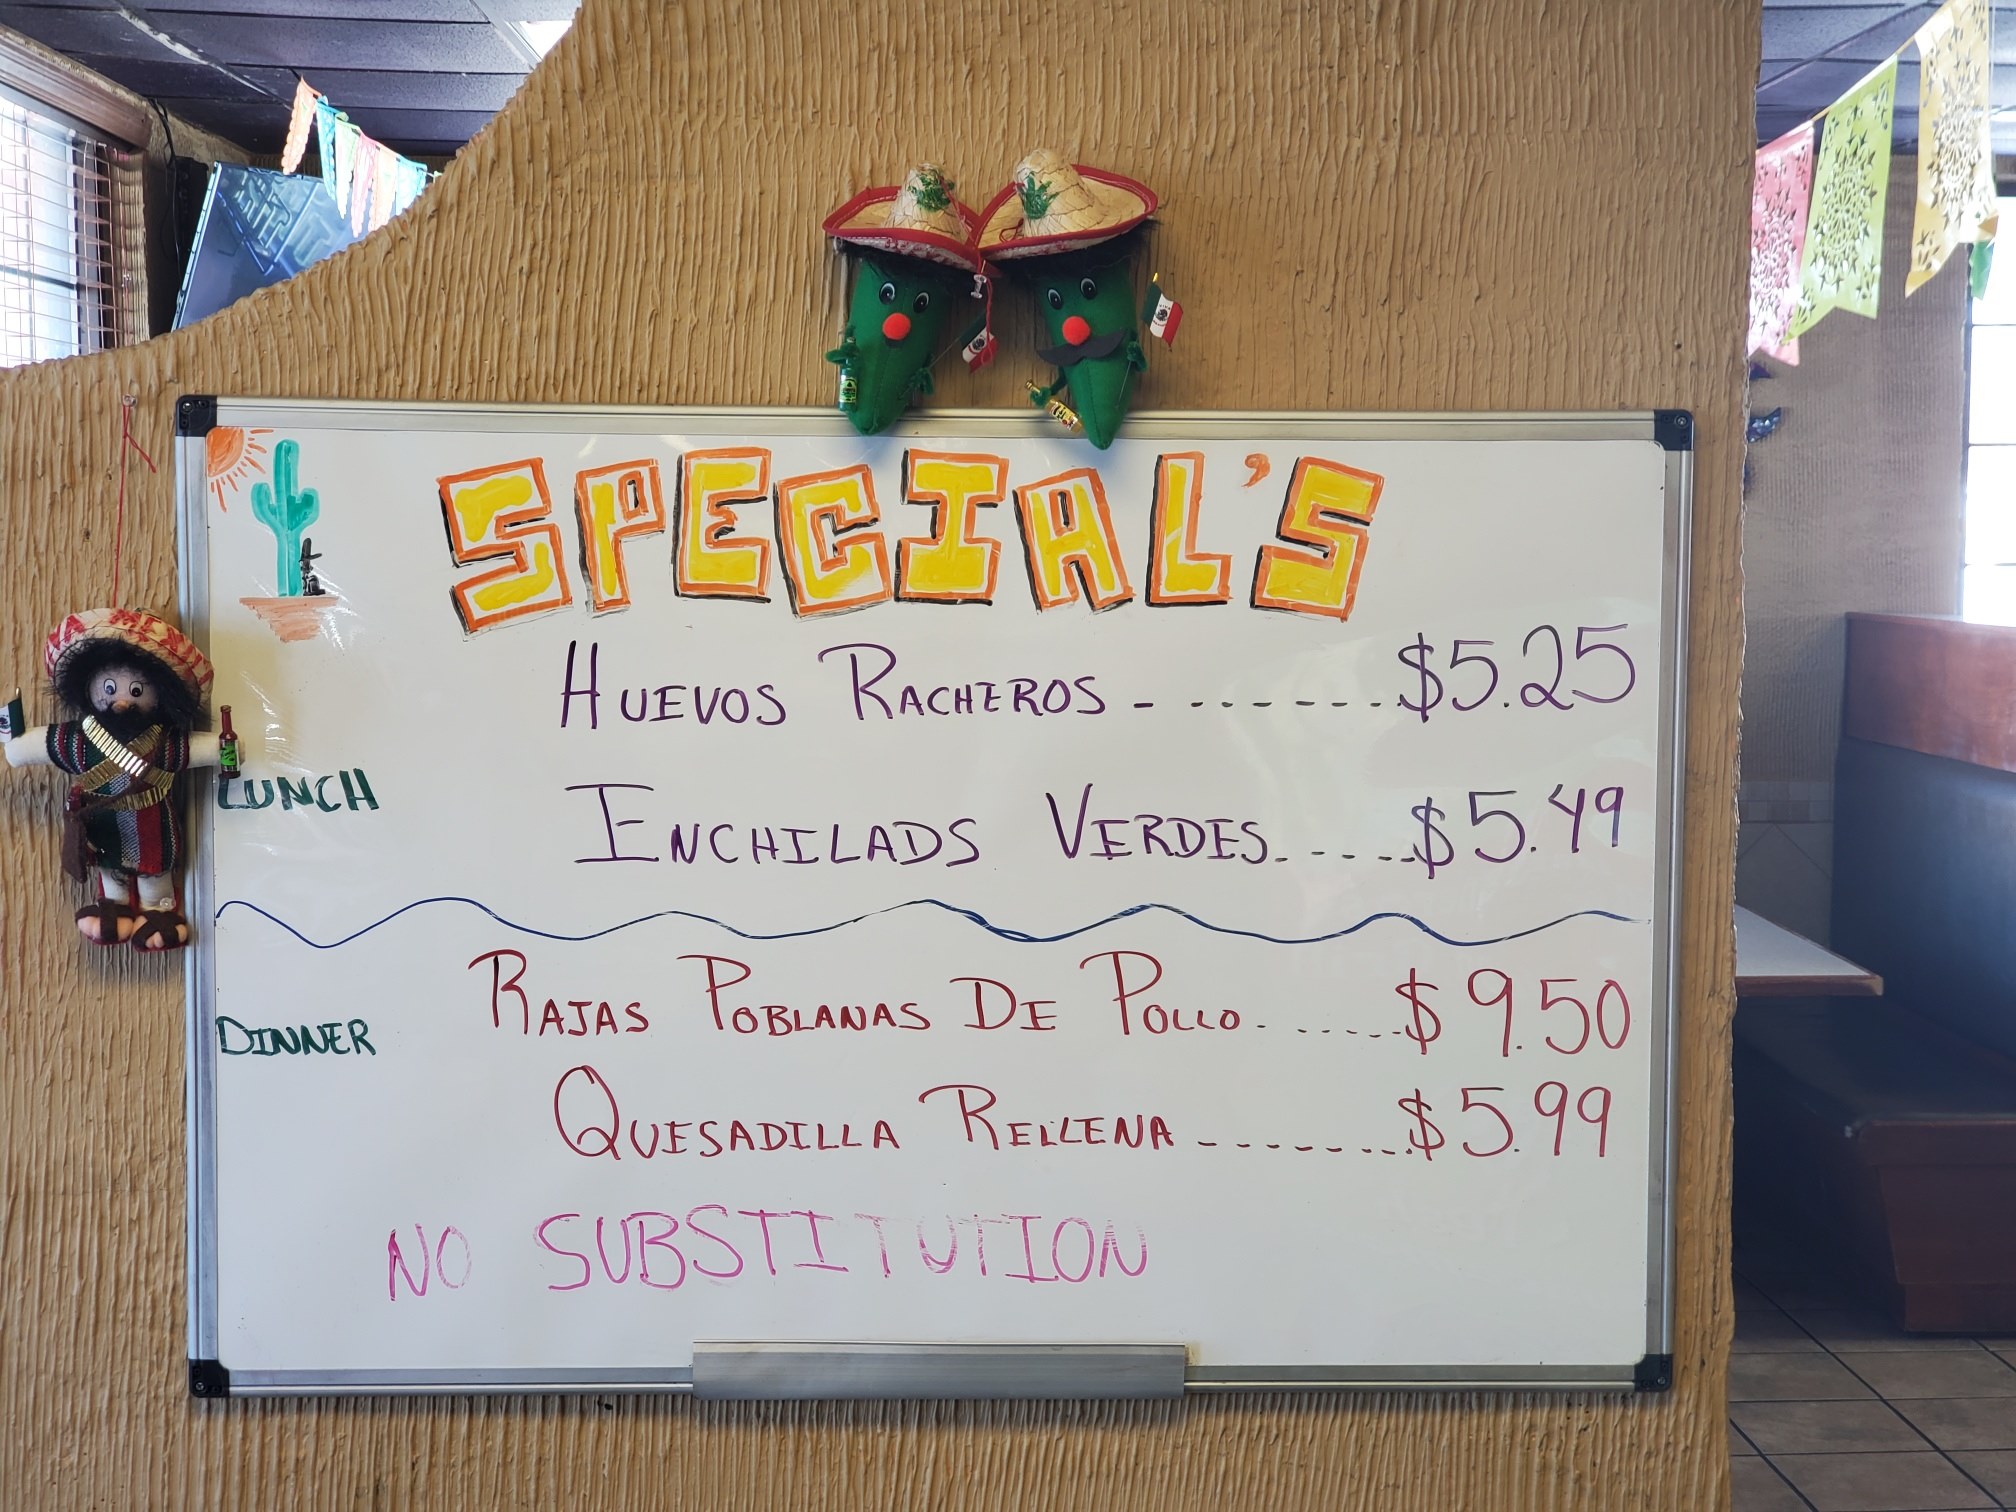 SPECIAL'S
HUEVOS RACHEROS - - - - - - - . $5.25
LUNCH
ENCHILADS VERDES. . - - . . $5.49
RAJAS POBLANAS DE POLLO. . - - - . . $9.50
DINNER
QUESADILLA RELLENA - - - - - - . . . $5.99
NO SUBSTITUTION